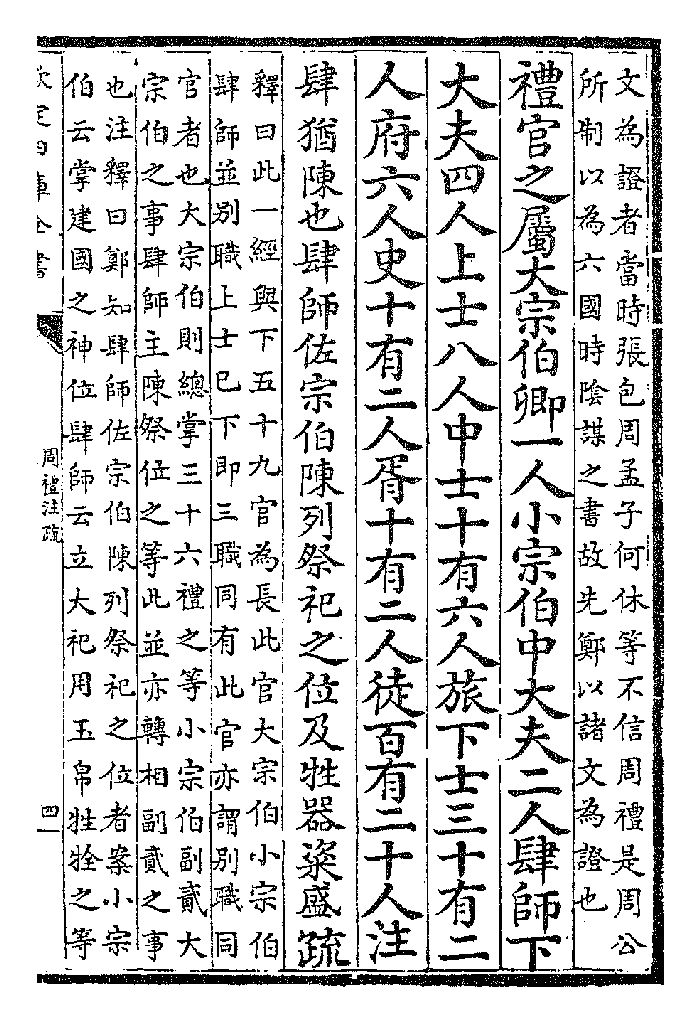 文為證者當時張包周孟子何休等不信周禮是周公
所制以為六國時陰謀之書故先鄭以諸文為證也
禮官之屬大宗伯卿一人小宗伯中大夫二人肆師下
大夫四人上士八人中士十有六人旅下士三十有二
人府六人史十有二人胥十有二人徒百有二十人注
肆猶陳也肆師佐宗伯陳列祭祀之位及牲器粢盛疏
釋曰此一經與下五十九官為長此官大宗伯小宗伯
肆師並別職上士已下即三職同有此官亦謂別職同
官者也大宗伯則總掌三十六禮之等小宗伯副貳大
宗伯之事肆師主陳祭位之等此並亦轉相副貳之事
也注釋曰鄭知肆師佐宗伯陳列祭祀之位者案小宗
伯云掌建國之神位肆師云立大祀用玉帛牲牷之等
欽定四庫全書
周禮注疏
四